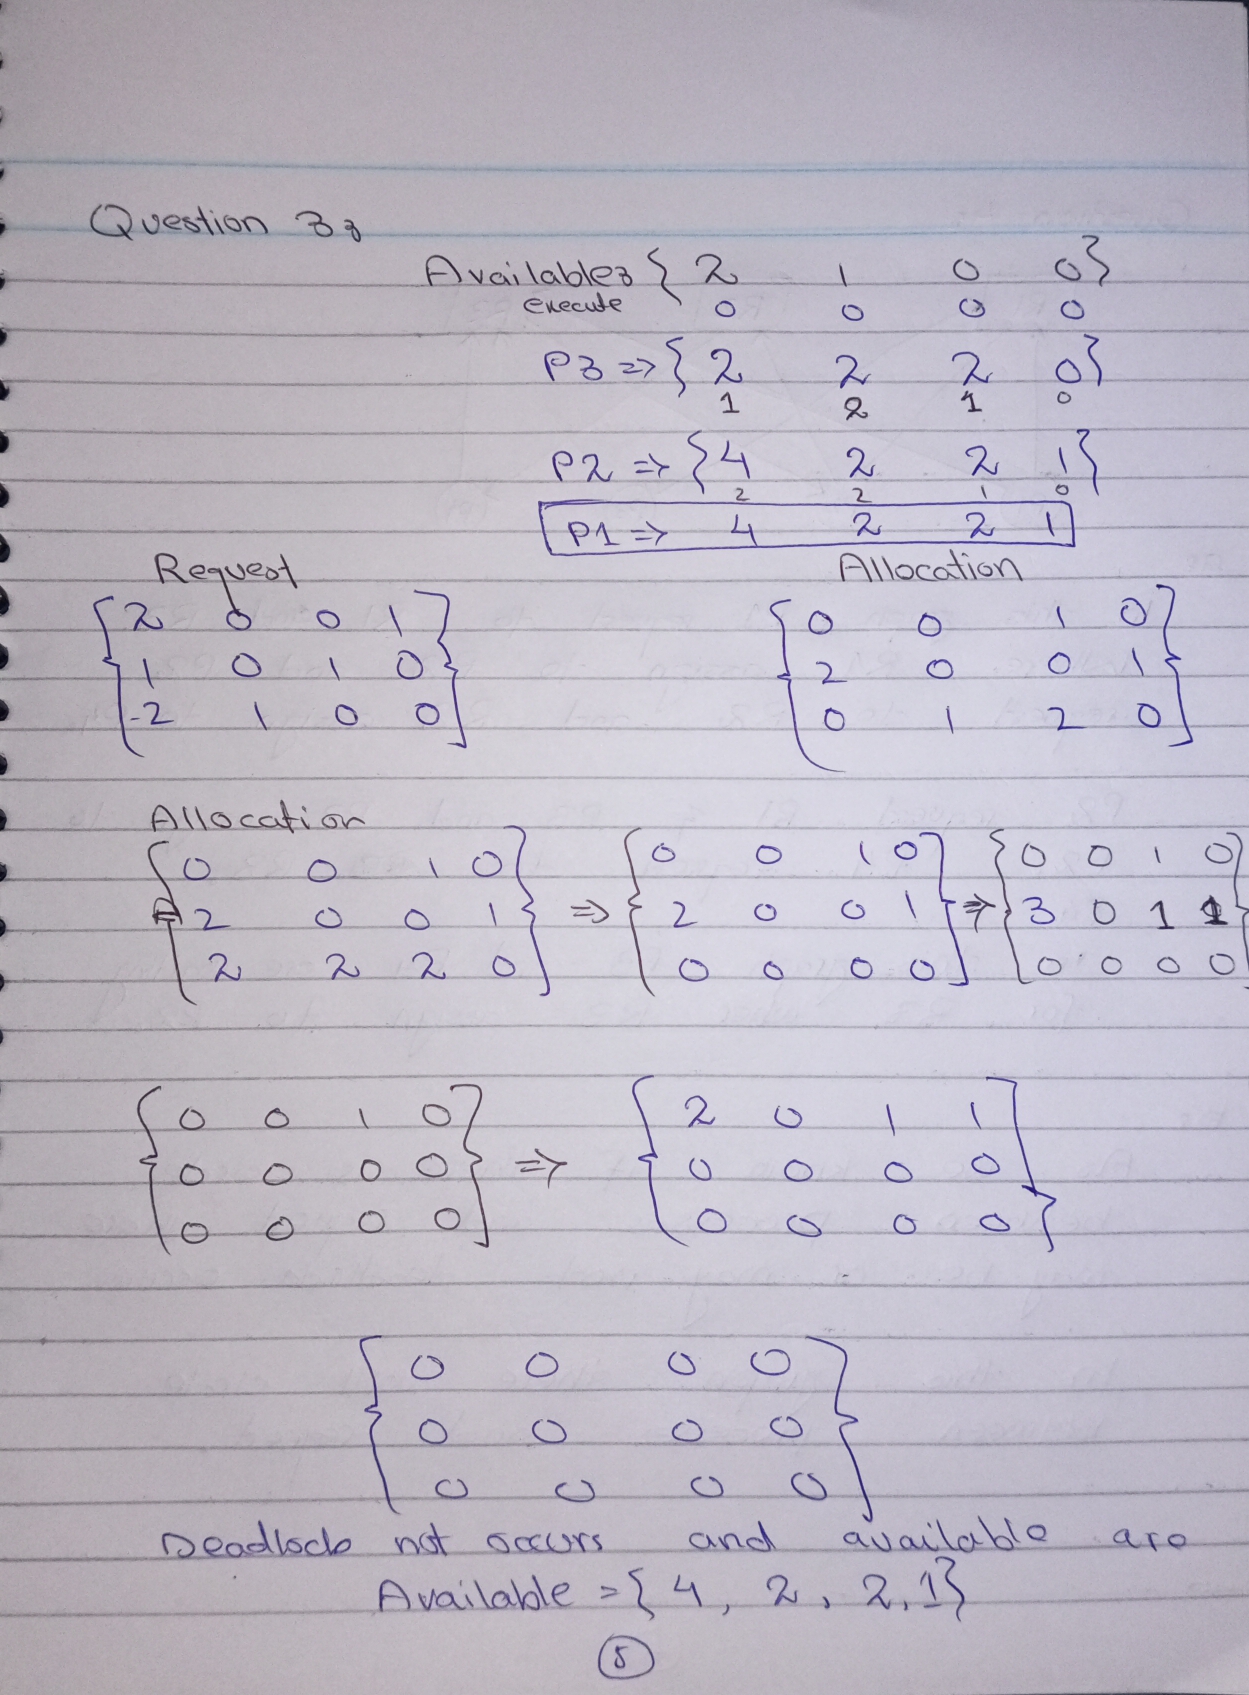 Question 3:
Available: { 2 1 0 0 }
execute 0 0 0 0
P3 => { 2 2 2 0 }
1 2 1 0
P2 => { 4 2 2 1 }
2 2 1 0
P1 => 4 2 2 1
Request Allocation
2 0 0 1 0 0 1 0
1 0 1 0 2 0 0 1
2 1 0 0 0 1 2 0
Allocation
0 0 1 0 0 0 1 0 0 0 1 0
2 0 0 1 => 2 0 0 1 => 3 0 1 1
2 2 2 0 0 0 0 0 0 0 0 0
0 0 1 0 2 0 1 1
0 0 0 0 => 0 0 0 0
0 0 0 0 0 0 0 0
0 0 0 0
0 0 0 0
0 0 0 0
Deadlock not occurs and available are
Available = { 4, 2, 2, 1 }
5